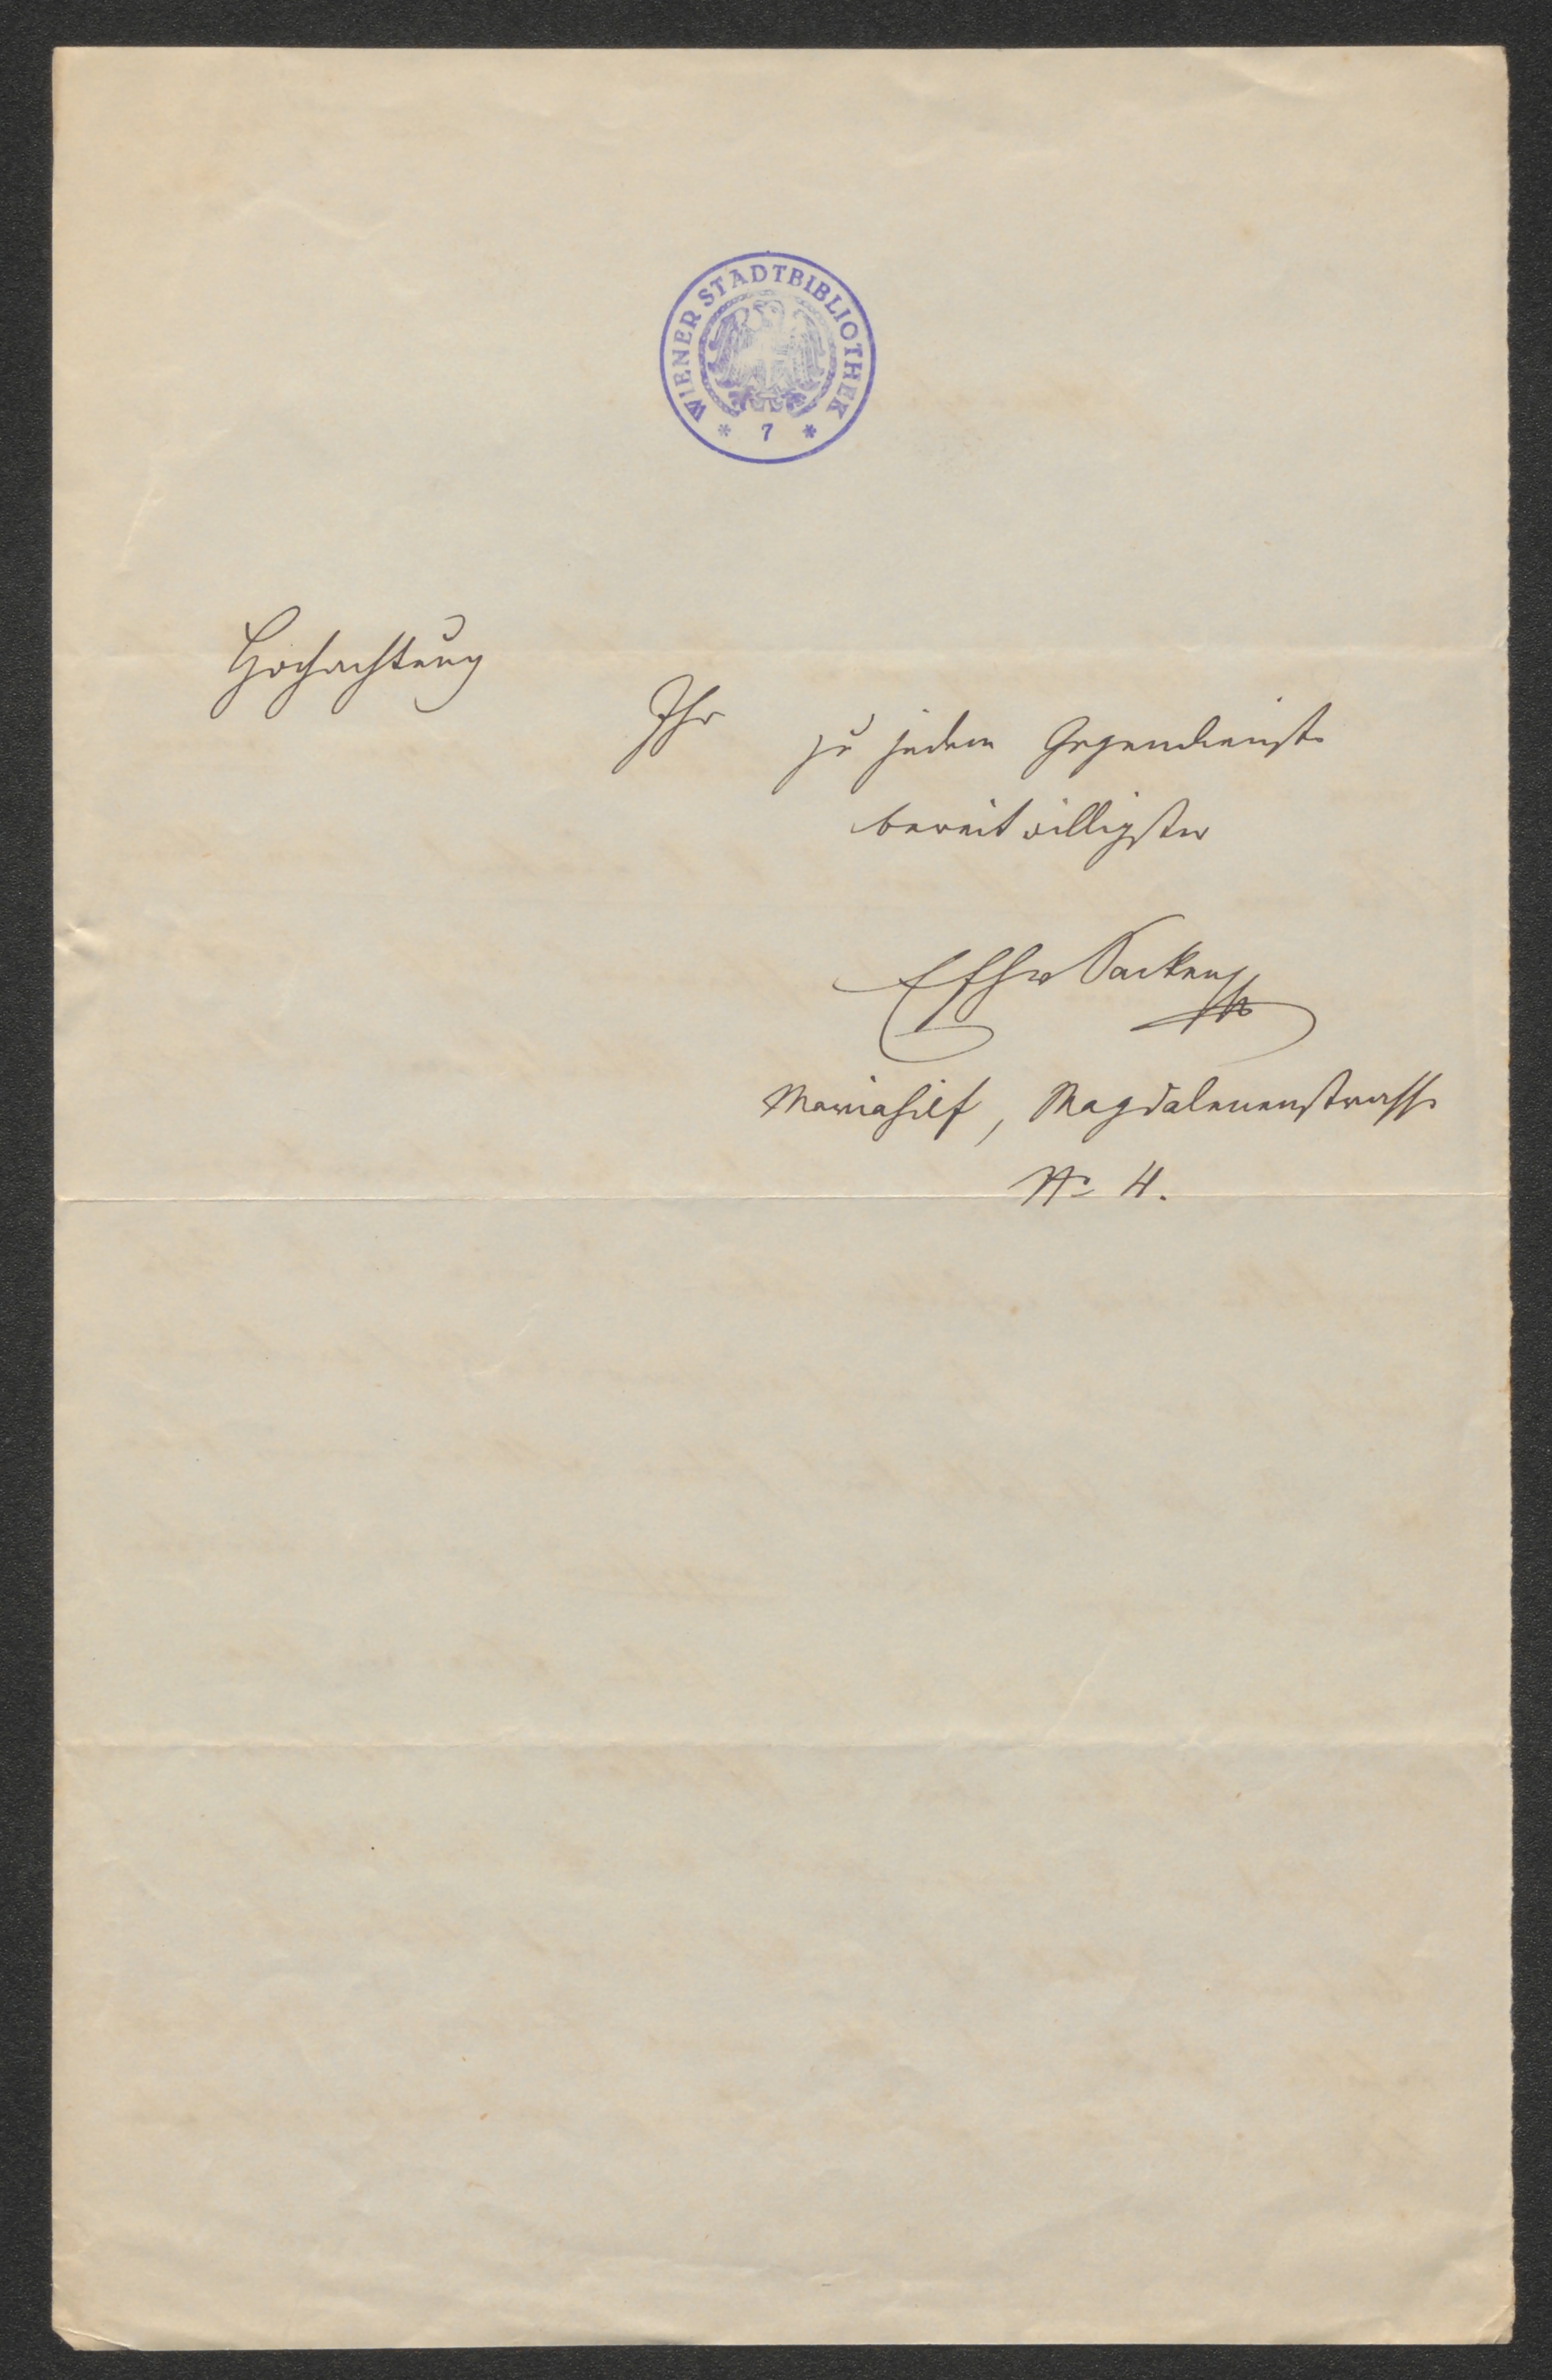 WIENER STADTBIBLIOTHEK
* 7 *
Hochachtung
Ihr zu jedem Gegendienste
bereitwilligster
Mariahilf, Magdalenenstrasse
No 4.